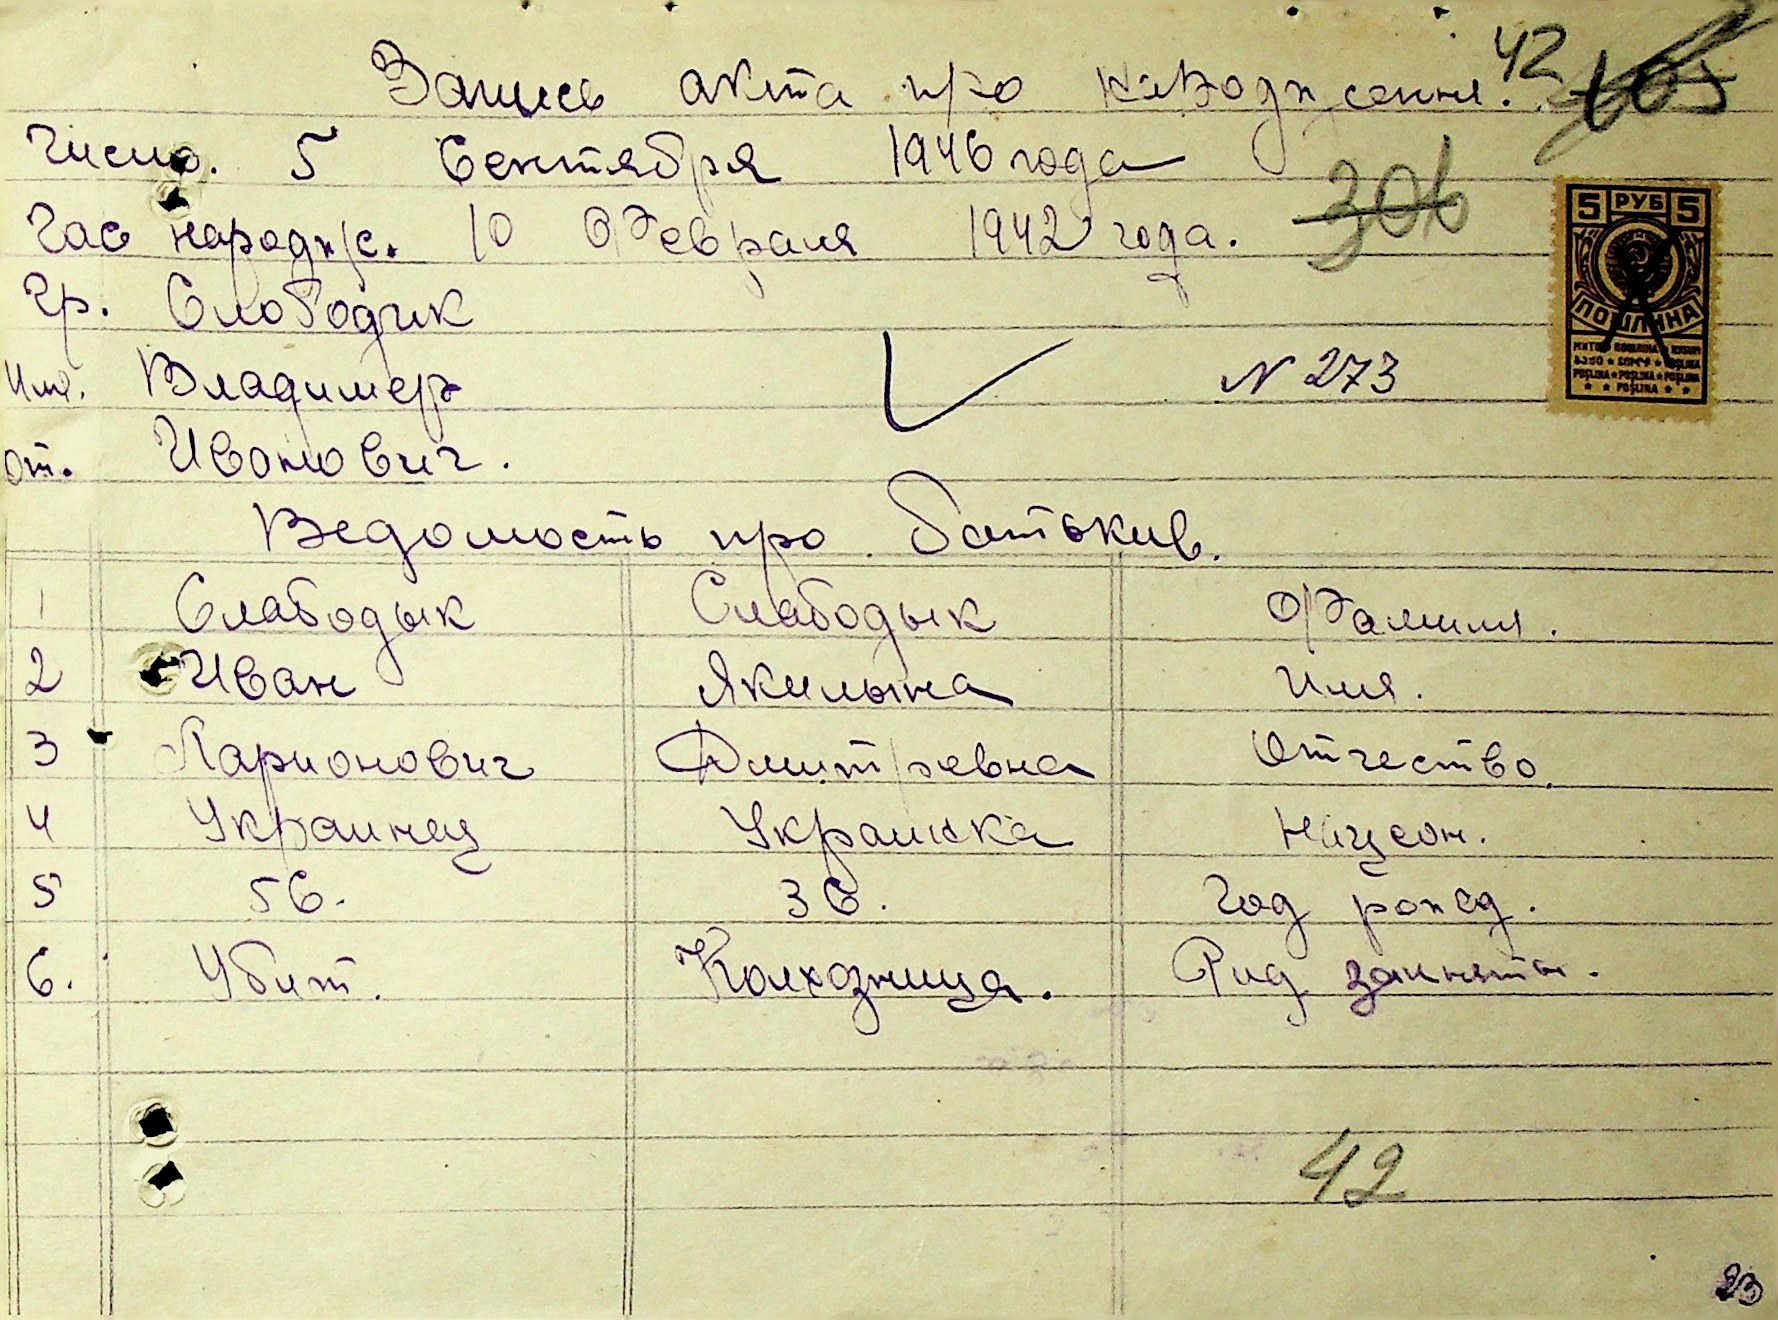 Запись акта про народження. 42
Число. 5 Сентября 1946 года
306
Час народж. 10 Февраля 1942 года.
5 РУБ 5
ПОШЛИНА
Гр. Слободик
Имя. Владимер
N 273
От. Иванович.
Ведомость про батькив.
1 Слабодык Слабодык Фамилия.
2 Иван Якилына Имя.
3 Ларионович Дмитревна Отчество.
4 Украинец Украинка Национ.
5 56. 36. Год рожд.
6. Убит. Колхозница. Рид заняття.
42
23